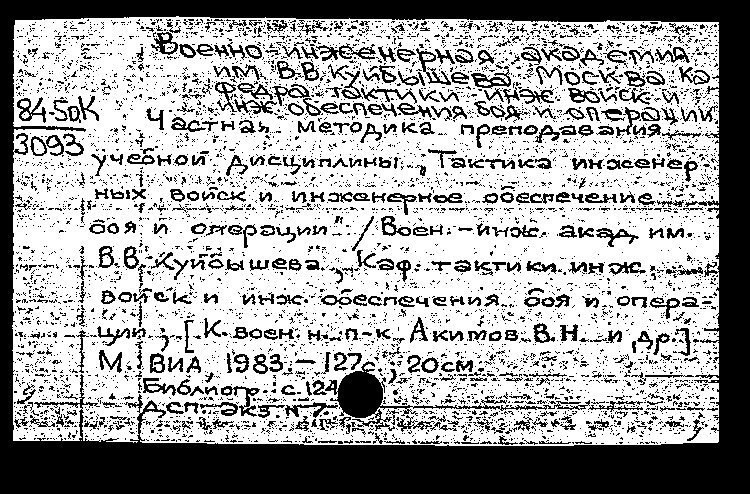 Военно-инженерная академия
им. В.В. Куйбышева Москва Ка
федра тактики инж войск и
инж обеспечения боя и операции.
84-5дК
3093
Частная методика преподавания
учебной дисциплины „Тактика инженер
ных войск и инженерное обеспечение
боя и операции" / Воен.-инж. акад. им.
В.В. Куйбышева ; Каф. тактики инж.
войск и инж. обеспечения боя и опера-
ции ; [К. воен. н. п-к Акимов В.Н. и др.]
М. ВИА, 1983. – 127 с., 20 см.
Библиогр.: с. 124
ДСП. экз. N 7.